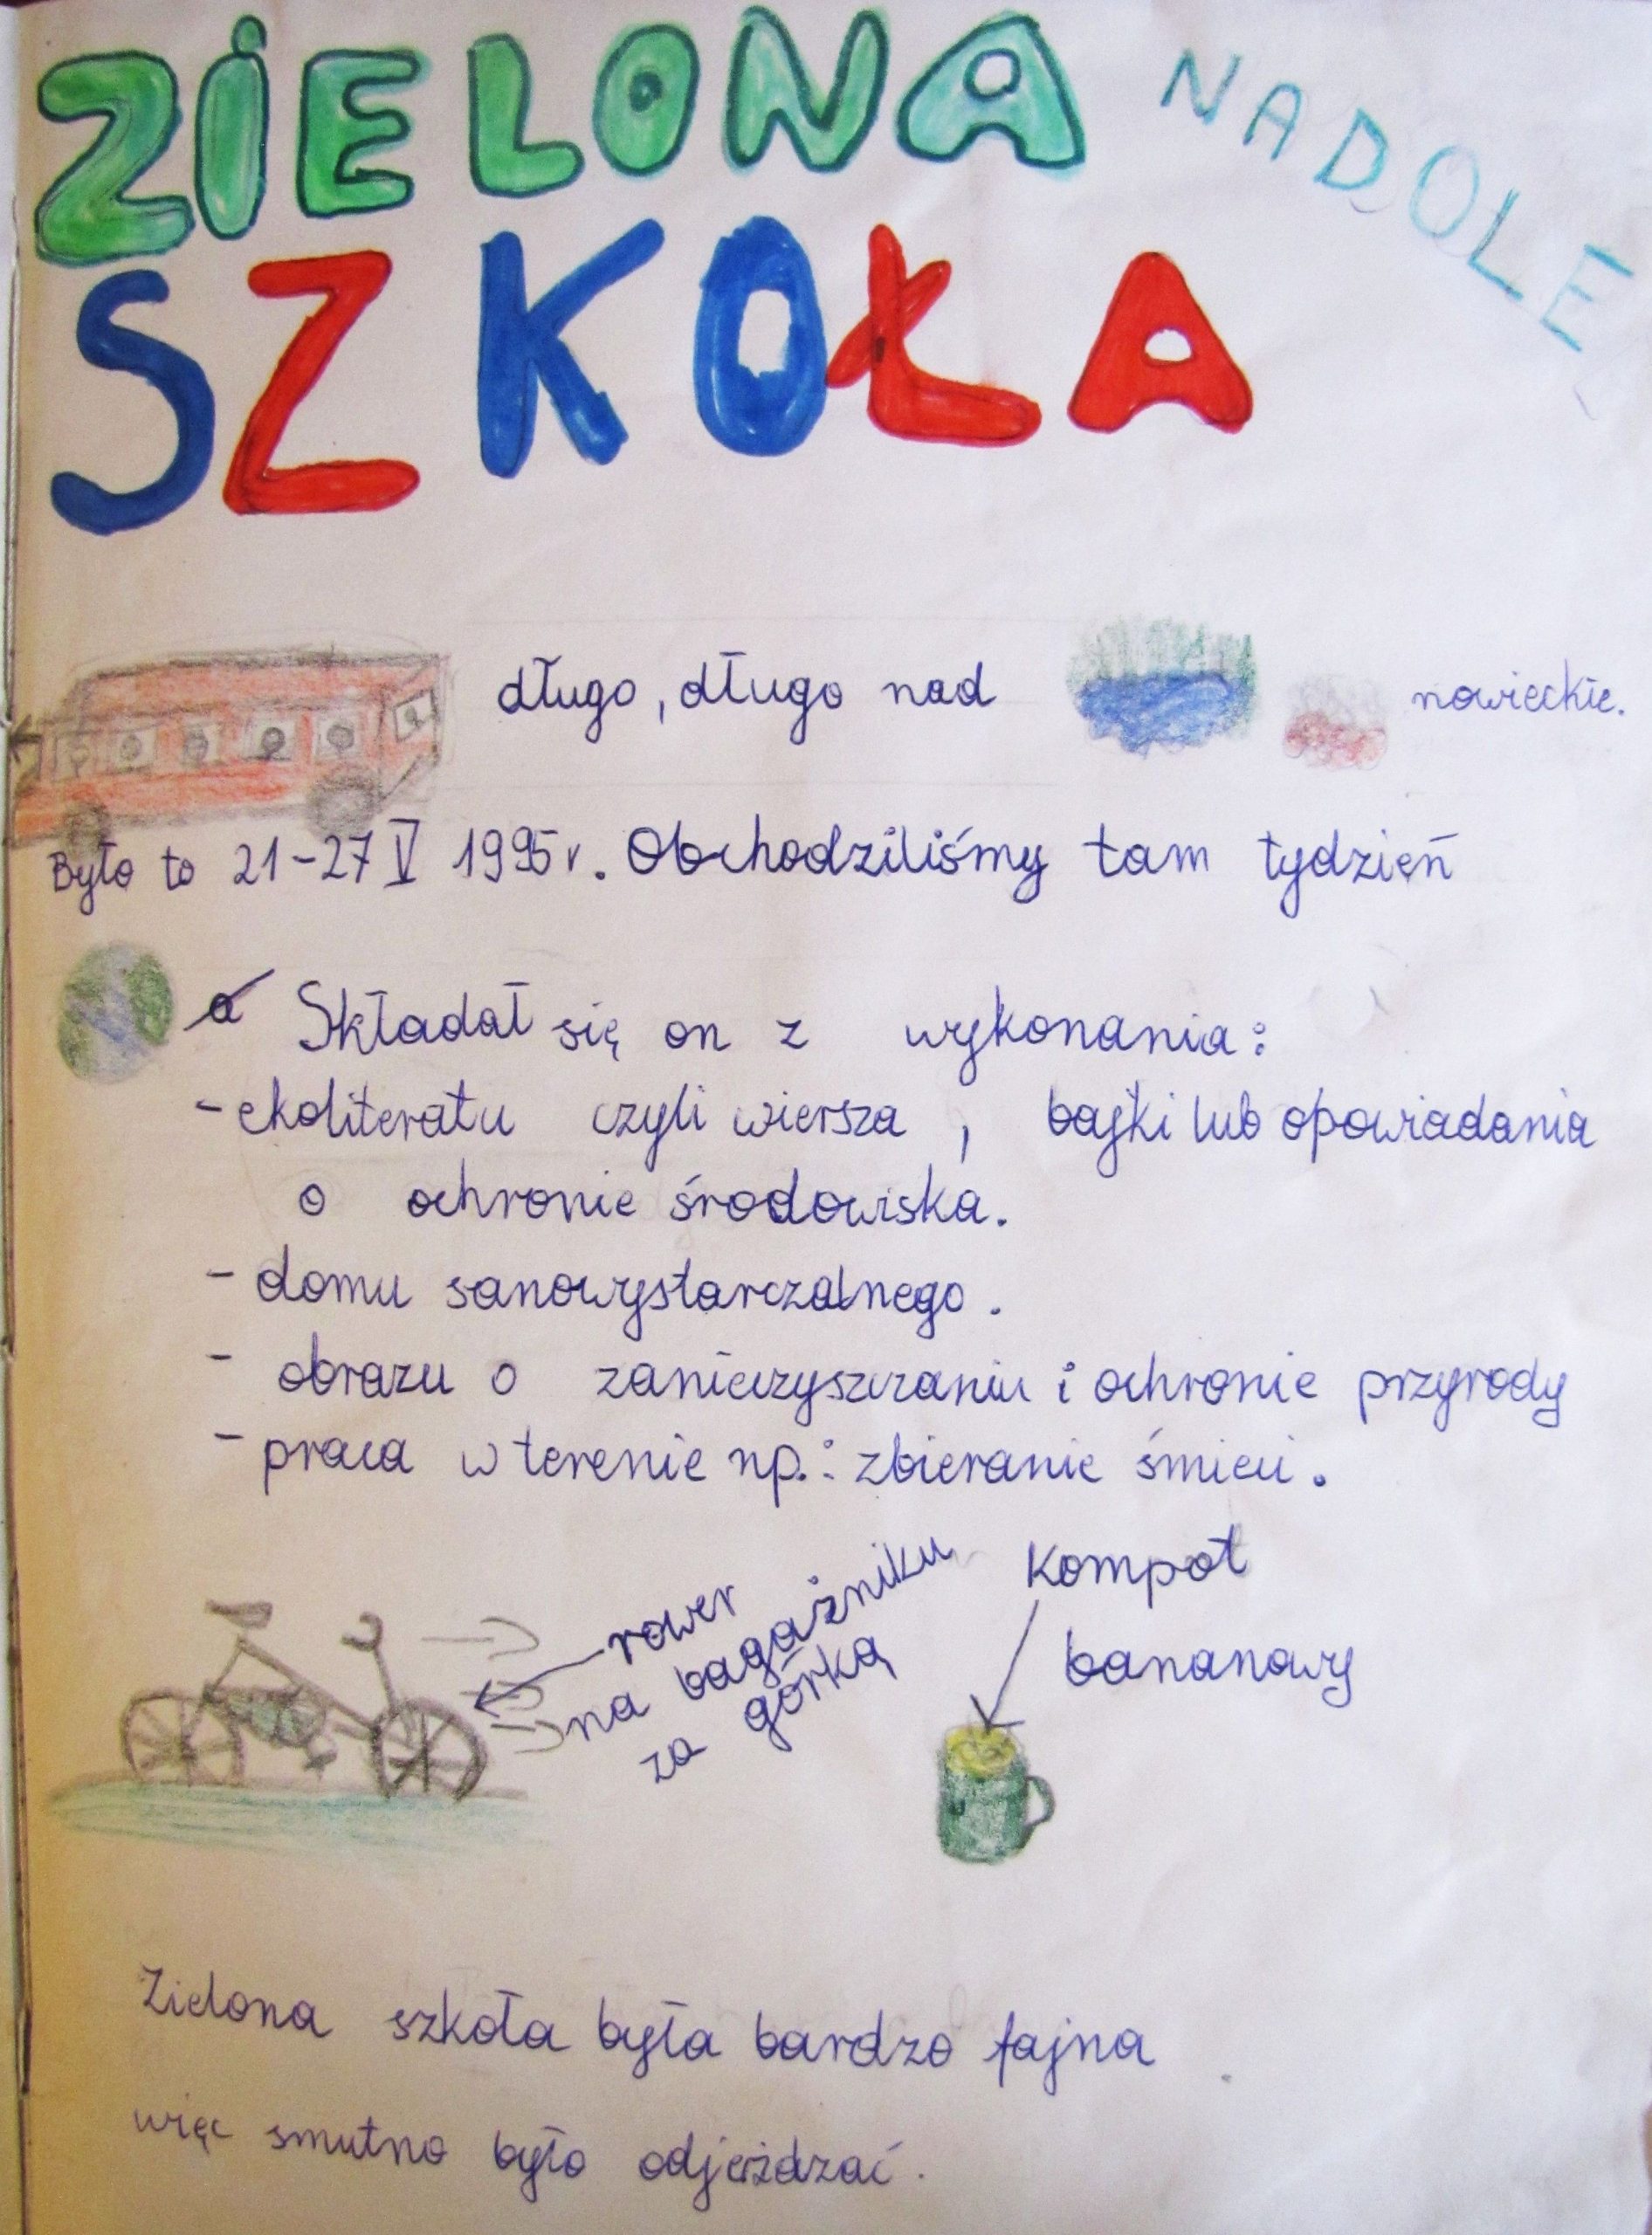 ZIELONA
NADOLE
SZKOŁA
długo, długo nad nowieckie.
Było to 21-27 V 1995 r. Obchodziliśmy tam tydzień
a Składał się on z wykonania:
- ekoliteratu czyli wiersza, bajki lub opowiadania
o ochronie środowiska.
- domu sanowystarczalnego.
- obrazu o zanieczyszczaniu i ochronie przyrody
- praca w terenie np.: zbieranie śmieci.
rower
na bagażniku
za górką
kompot
bananowy
Zielona szkoła była bardzo fajna
więc smutno było odjeżdzać.